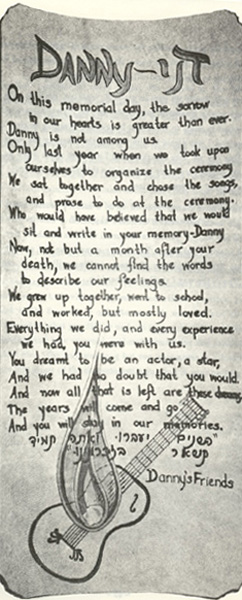 DANNY – דני
On this memorial day, the sorrow
in our hearts is greater than ever.
Danny is not among us.
Only last year when we took upon
ourselves to organize the ceremony
We sat together and chose the songs,
and prose to do at the ceremony.
Who would have believed that we would
sit and write in your memory-Danny
Now, not but a month after your
death, we cannot find the words
to describe our feelings.
We grew up together, went to school,
and worked, but mostly loved.
Everything we did, and every experience
we had, you were with us.
You dreamt to be an actor, a star,
And we had no doubt that you would.
And now all that is left are these dreams,
The years will come and go
And you will stay in our memories.
"השנים יעברו ואתה תמיד
תשאר בזכרוננו"
Danny's Friends